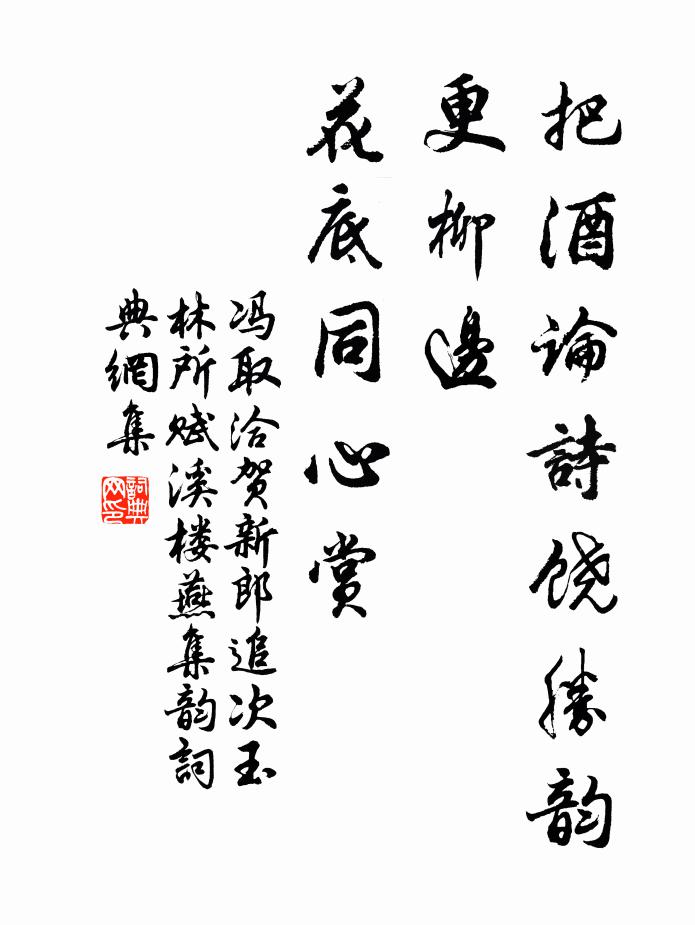 把酒論詩饶勝韵
更柳邊
花底同心賞
冯取洽贺新郎追次玉
林所赋溪楼燕集韵詞
典網集
詞典网印